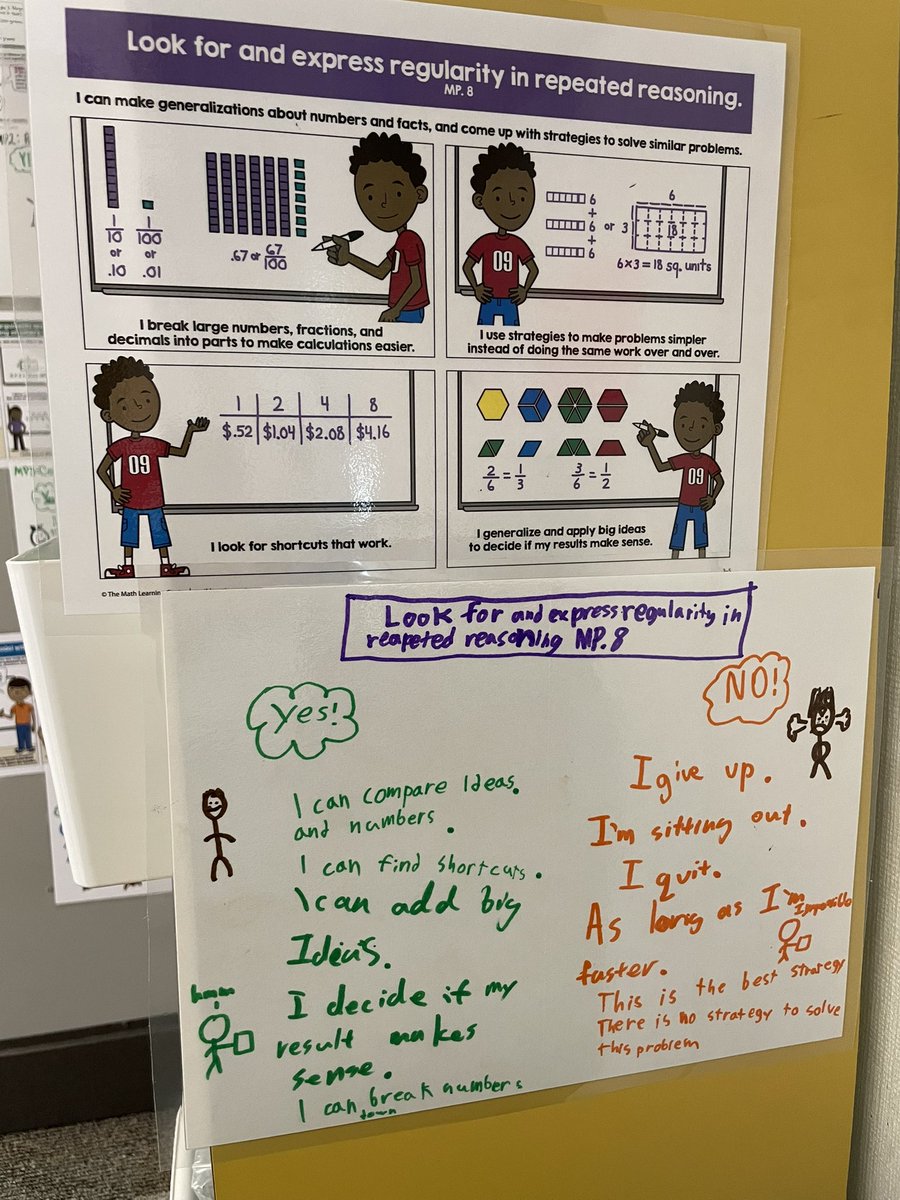 Look for and express regularity in repeated reasoning.
MP. 8
I can make generalizations about numbers and facts, and come up with strategies to solve similar problems.
1/10 1/100
or or
.10 .01
.67 or 67/100
I break large numbers, fractions, and
decimals into parts to make calculations easier.
09
6
+
6
+
6
or
3
6
18
6×3=18 sq. units
I use strategies to make problems simpler
instead of doing the same work over and over.
09
1 2 4 8
$.52 $1.04 $2.08 $4.16
I look for shortcuts that work.
2/6 = 1/3 3/6 = 1/2
09
I generalize and apply big ideas
to decide if my results make sense.
© The Math Learnin
Look for and express regularity in
reapeted reasoning MP.8
Yes!
I can compare Ideas.
and numbers.
I can find shortcuts.
I can add big
Ideas.
hmm
I decide if my
result makes
sense.
I can break numbers
down
NO!
I give up.
I'm sitting out.
I quit.
As long as I'm
Impossible
faster.
This is the best strategy
There is no strategy to solve
this problem